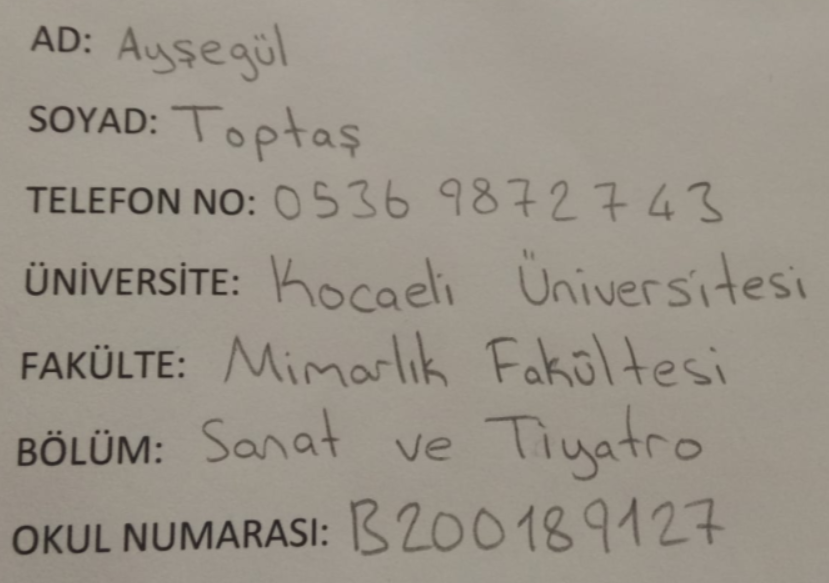 AD: Ayşegül
SOYAD: Toptaş
TELEFON NO: 0536 9872743
ÜNİVERSİTE: Kocaeli Üniversitesi
FAKÜLTE: Mimarlık Fakültesi
BÖLÜM: Sanat ve Tiyatro
OKUL NUMARASI: B200189127